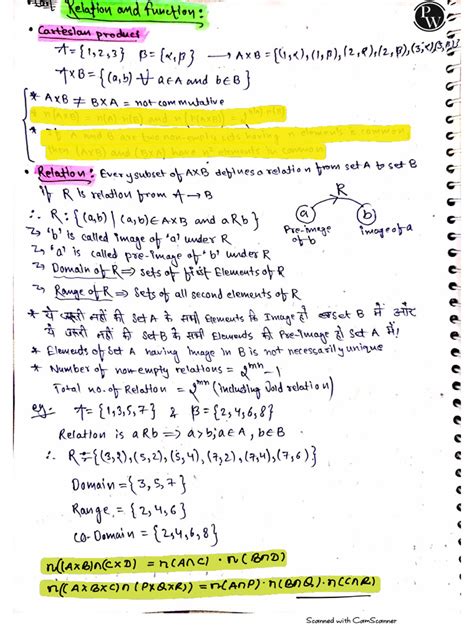 Relation and function:
PW
• Cartesian product
A = {1,2,3} B = {α,β} → A×B = {(1,α),(1,β),(2,α),(2,β),(3,α),(3,β)}
A×B = {(a,b) ∀ a∈A and b∈B}
* A×B ≠ B×A = not commutative
* n(A×B) = n(A)·n(B) and
* If A and B are two non-empty sets having n elements in common
then (A×B) and (B×A) have n² elements in common
• Relation: Every subset of A×B defines a relation from set A to set B
if R is relation from A → B
∴ R: {(a,b) | (a,b)∈A×B and aRb}
R
a b
Pre-image of b
image of a
'b' is called image of 'a' under R
'a' is called pre-image of 'b' under R
Domain of R ⇒ sets of first Elements of R
Range of R ⇒ sets of all second elements of R
* ये जरूरी नहीं की Set A के सभी Elements कि Image हो Set B में और
ये जरूरी नहीं की Set B के सभी Elements की Pre-Image हो Set A में!
* Elements of Set A having image in B is not necessarily unique
* Number of non-empty relations = 2^mn − 1
Total no. of Relation = 2^mn (including Void relation)
eg: A = {1,3,5,7} & B = {2,4,6,8}
Relation is aRb ⇒ a>b; a∈A, b∈B
∴ R = {(3,2),(5,2),(5,4),(7,2),(7,4),(7,6)}
Domain = {3,5,7}
Range = {2,4,6}
Co-Domain = {2,4,6,8}
n((A×B)∩(C×D)) = n(A∩C) · n(B∩D)
n((A×B×C)∩(P×Q×R)) = n(A∩P)·n(B∩Q)·n(C∩R)
Scanned with CamScanner